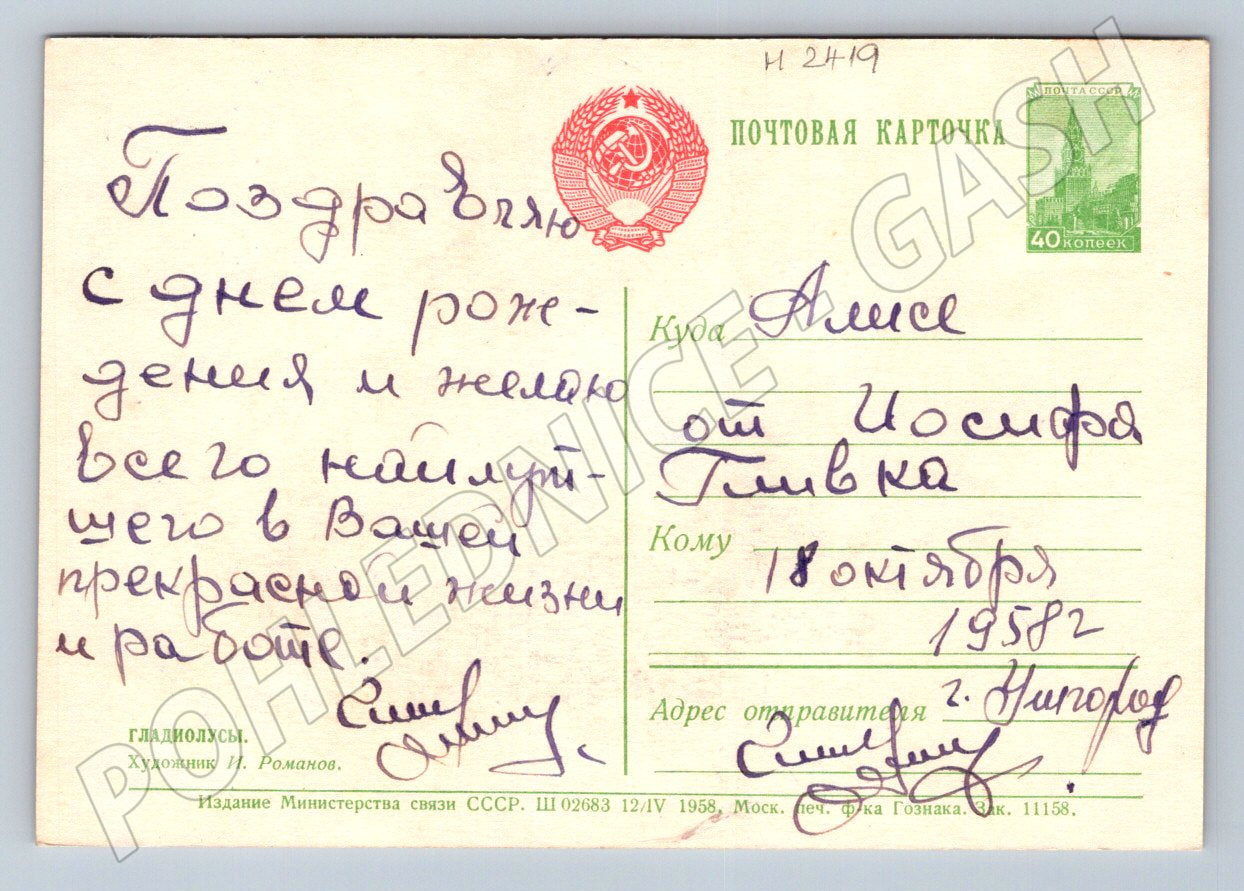 н 2419
ПОЧТОВАЯ КАРТОЧКА
ПОЧТА СССР
40 КОПЕЕК
Поздравляю
с днем рож-
дения и желаю
всего наилут-
шего в Вашей
прекрасной жизни
и работе.
ГЛАДИОЛУСЫ.
Художник И. Романов.
Куда Алисе
от Иосифа
Гливка
Кому
18 октября
1958 г
Адрес отправителя г. Ужгород
Издание Министерства связи СССР. Ш 02683 12/IV 1958. Моск. печ. ф-ка Гознака. Зак. 11158.
POHLEDNICE - GASH